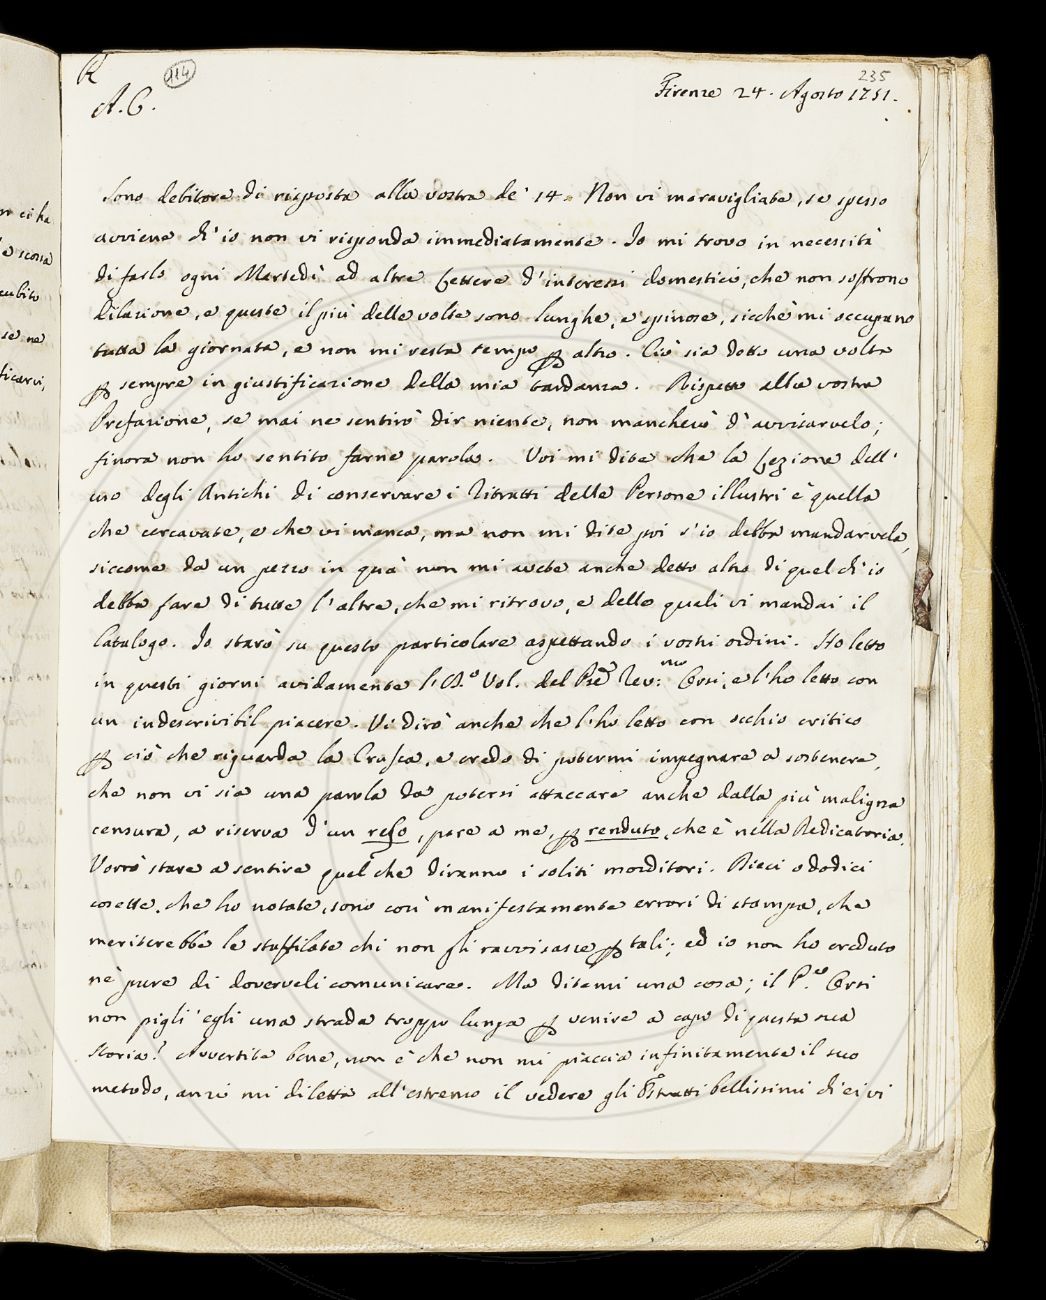 R
114
235
A. C.
Firenze 24. Agosto 1751.
Sono debitore di risposta alla vostra de' 14. Non vi maravigliate, se spesso
avviene ch'io non vi risponda immediatamente. Io mi trovo in necessità
di farlo ogni Martedì ad altre Lettere d'interessi domestici, che non soffrono
dilazione, e queste il più delle volte sono lunghe, e spinose, sicchè mi occupano
tutta la giornata, e non mi resta tempo p altro. Ciò sia detto una volta
p sempre in giustificazione della mia tardanza. Rispetto alla vostra
Prefazione, se mai ne sentirò dir niente, non mancherò d'avvisarvelo;
finora non ho sentito farne parola. Voi mi dite che la Lezione dell'
uso degli Antichi di conservare i Ritratti delle Persone illustri è quella
che cercavate, e che vi manca, ma non mi dite poi s'io debba mandarvela,
siccome da un pezzo in quà non mi avete anche detto altro di quel ch'io
debba fare di tutte l'altre, che mi ritrovo, e delle quali vi mandai il
Catalogo. Io starò su questo particolare aspettando i vostri ordini. Ho letto
in questi giorni avidamente l' Vol. del Pre Rev:mo Corsi, e l'ho letto con
un indescrivibil piacere. Vi dirò anche che l'ho letto con occhio critico
p ciò che riguarda la Crusca, e credo di potermi impegnare a sostenere,
che non vi sia una parola da potersi attaccare anche dalla più maligna
censura, a riserva d'un reso, pare a me, p renduto, che è nella Dedicatoria.
Vorrò stare a sentire quel che diranno i soliti morditori. Dieci o dodici
cosette, che ho notate, sono così manifestamente errori di stampa, che
meriterebbe le staffilate chi non gli ravvisasse p tali; ed io non ho creduto
nè pure di doverveli comunicare. Ma ditemi una cosa; il P. Corsi
non pigli' egli una strada troppo lunga p venire a capo di questa sua
Storia? Avvertite bene, non è che non mi piaccia infinitamente il suo
metodo, anzi mi diletta all'estremo il vedere gli Estratti bellissimi ch'ei vi